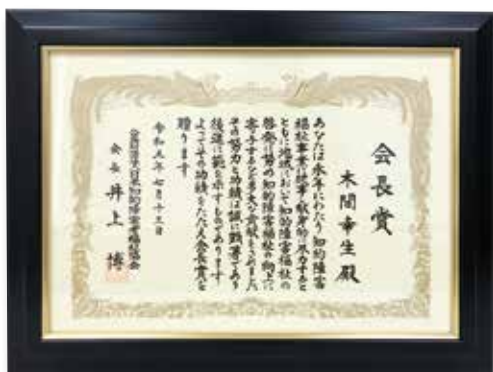 会長賞
木間幸生殿
あなたは永年にわたり知的障害
福祉事業に従事し献身的に尽力すると
ともに地域において知的障害福祉の
啓発に努め知的障害福祉の向上に
寄与するなど多大な貢献をされました
その努力と功績は誠に顕著であり
後進に範を示すものであります
よってその功績をたたえ会長賞を
贈ります
令和五年七月十三日
公益財団法人日本知的障害者福祉協会
会長 井上博